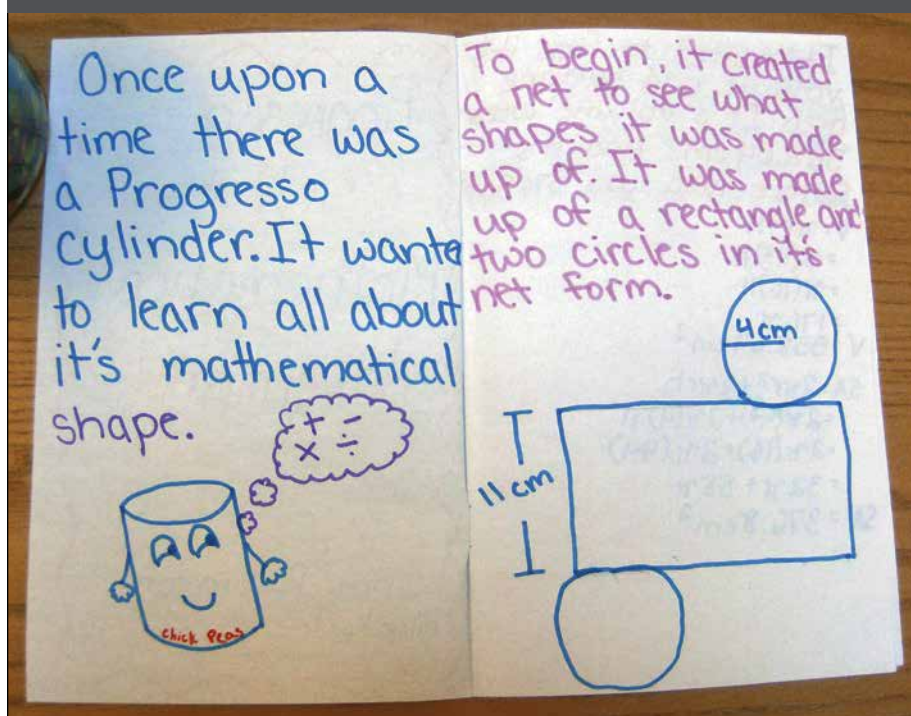 Once upon a
time there was
a Progresso
cylinder. It wante
to learn all about
it's mathematical
shape.
+ -
× ÷
chick Peas
To begin, it created
a net to see what
shapes it was made
up of. It was made
up of a rectangle and
two circles in it's
net form.
4cm
11 cm